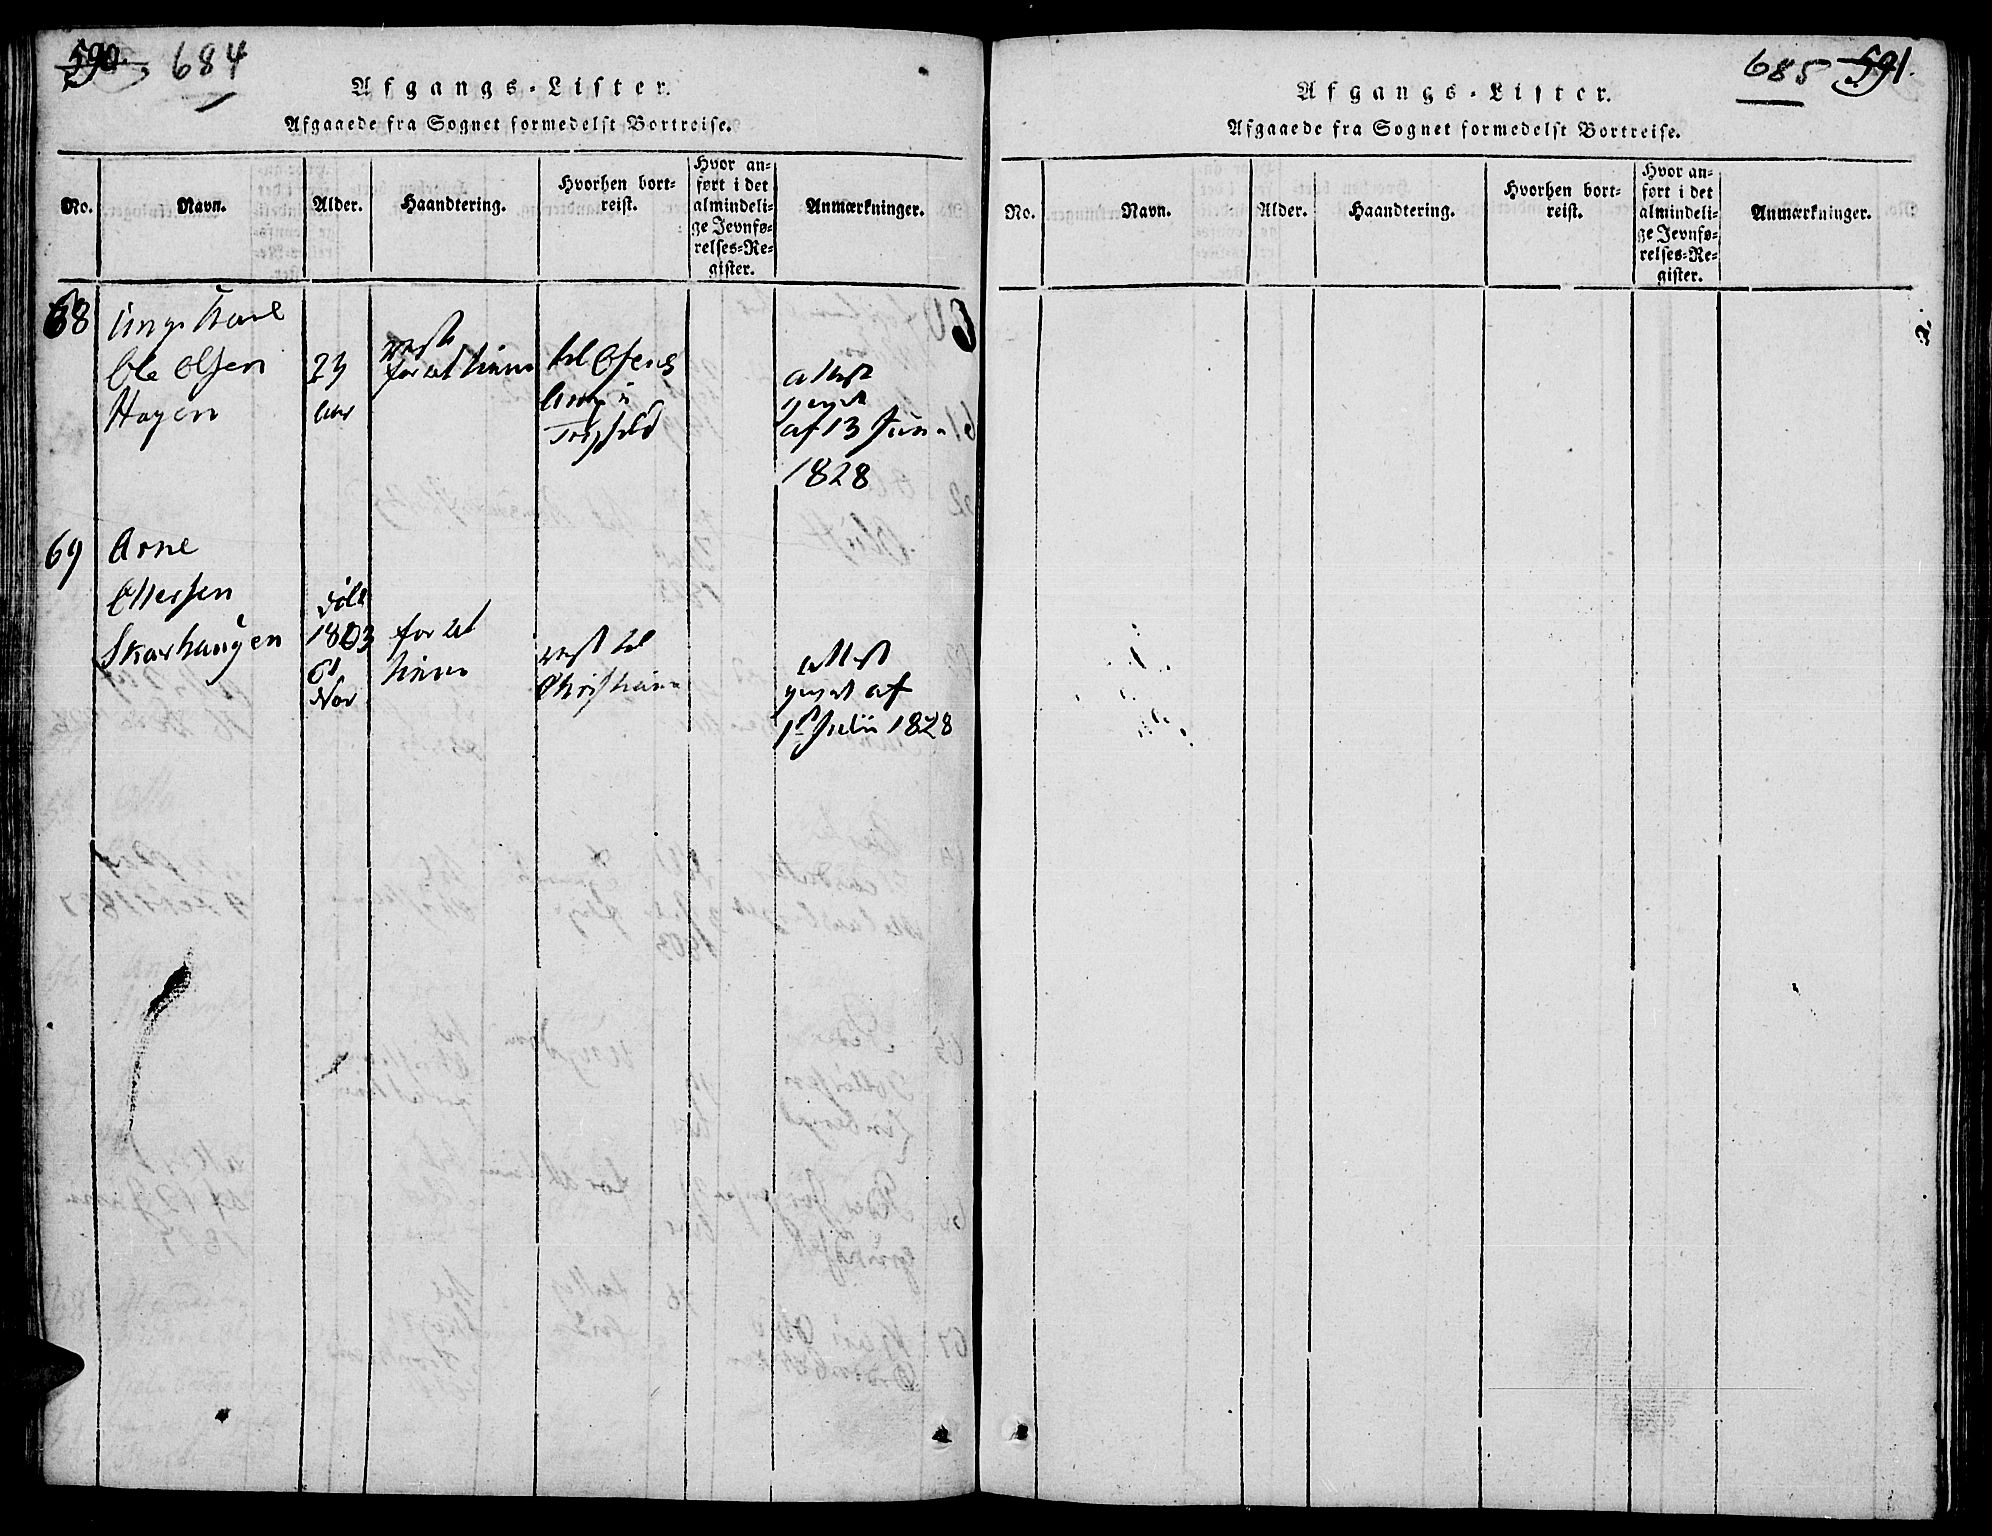 590. 684
Afgangs-Lister.
Afgaaede fra Sognet formedelst Bortreise.
No.
Navn.
Alder.
Haandtering.
Hvorhen bort-
reist.
Hvor an-
ført i det
almindeli-
ge Jevnfø-
relses-Re-
gister.
Anmærkninger.
68
Ungekarl
Ole Olsen
Hagen
23
Aar
for at tiene
Trysild
attest
af 13 Juni
1828
69
Arne
Ottersen
Skarhaugen
1803
6t
Nov
for at
tiene
reist til
Christiania
attest
af
1st Julii 1828
685 591.
Afgangs-Lister.
Afgaaede fra Sognet formedelst Bortreise.
No.
Navn.
Alder.
Haandtering.
Hvorhen bort-
reist.
Hvor an-
ført i det
almindeli-
ge Jevnfø-
relses-Re-
gister.
Anmærkninger.